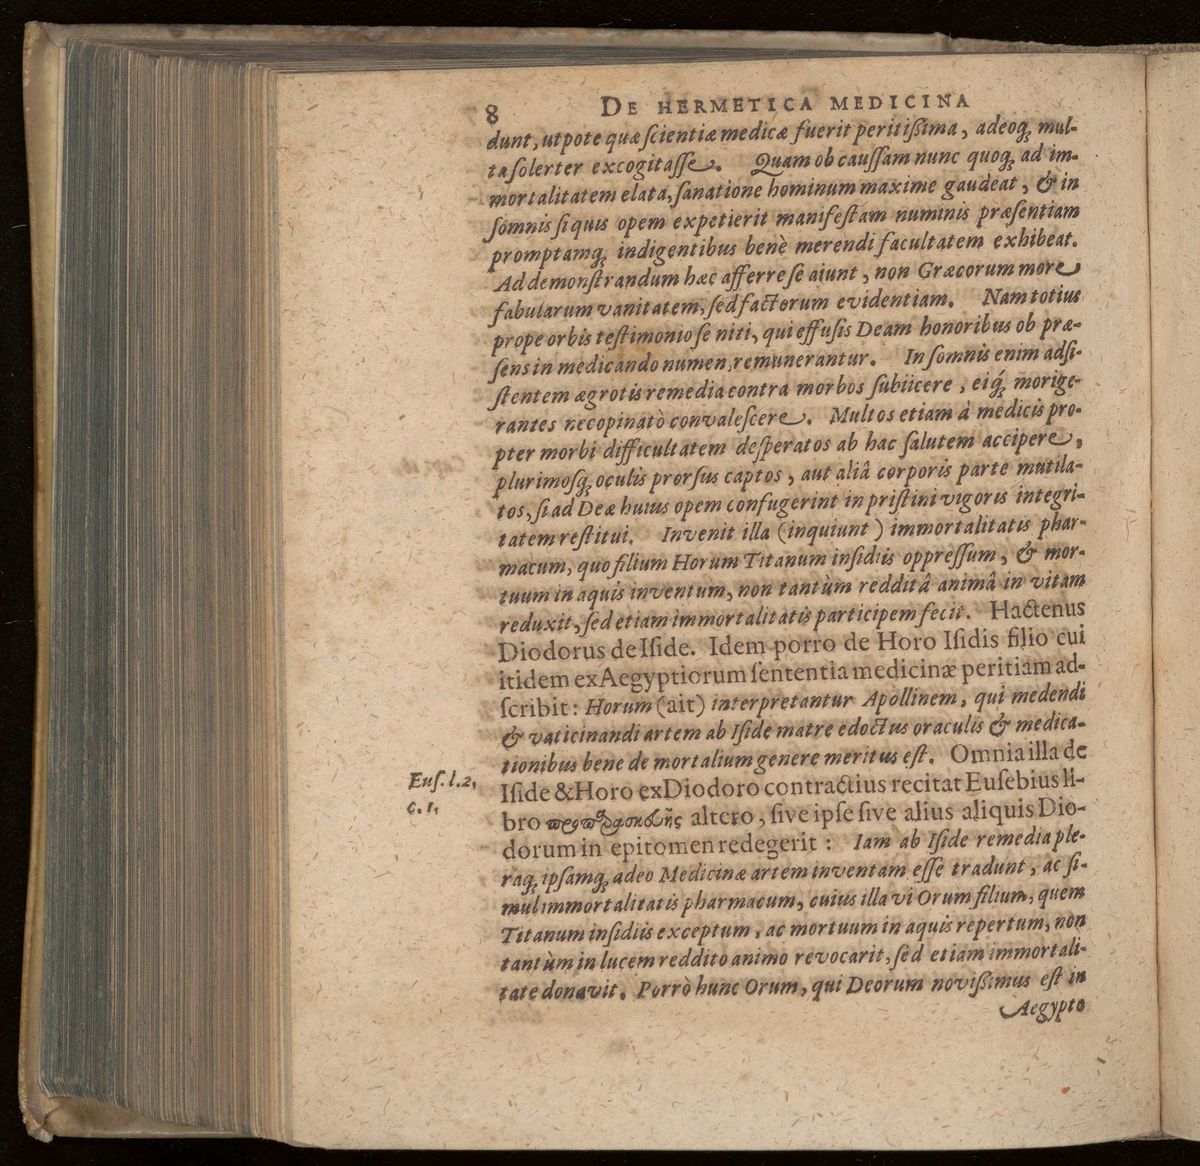 8 DE HERMETICA MEDICINA
dunt, utpote quæ ſcientiæ medicæ fuerit peritißima, adeoq́; mul-
ta ſolerter excogitaſſe. Quam ob cauſſam nunc quoq; ad im-
mortalitatem elata, ſanatione hominum maxime gaudeat, & in
ſomnis ſi quis opem expetierit manifeſtam numinis præſentiam
promptamq; indigentibus benè merendi facultatem exhibeat.
Ad demonſtrandum hæc afferre ſe aiunt, non Græcorum more
fabularum vanitatem, ſed factorum evidentiam. Nam totius
prope orbis teſtimonio ſe niti, qui effuſis Deam honoribus ob præ-
ſens in medicando numen, remunerantur. In ſomnis enim adſi-
ſtentem ægrotis remedia contra morbos ſubiicere, eiq́; morige-
rantes necopinatò convaleſcere. Multos etiam à medicis pro-
pter morbi difficultatem deſperatos ab hac ſalutem accipere,
plurimoſq; oculis prorſus captos, aut aliâ corporis parte mutila-
tos, ſi ad Deæ huius opem confugerint in priſtini vigoris integri-
tatem reſtitui. Invenit illa (inquiunt) immortalitatis phar-
macum, quo filium Horum Titanum inſidiis oppreſſum, & mor-
tuum in aquis inventum, non tantùm redditâ animâ in vitam
reduxit, ſed etiam immortalitatis participem fecit. Hactenus
Diodorus de Iſide. Idem porro de Horo Iſidis filio cui
itidem ex Aegyptiorum ſententia medicinæ peritiam ad-
ſcribit: Horum (ait) interpretantur Apollinem, qui medendi
& vaticinandi artem ab Iſide matre edoctus oraculis & medica-
tionibus bene de mortalium genere meritus eſt. Omnia illa de
Euſ. l. 2, Iſide & Horo ex Diodoro contractius recitat Euſebius li-
c. 1, bro altero, ſive ipſe ſive alius aliquis Dio-
dorum in epitomen redegerit: Iam ab Iſide remedia ple-
raq; ipſamq; adeo Medicinæ artem inventam eſſe tradunt, ac ſi-
mul immortalitatis pharmacum, cuius illa vi Orum filium, quem
Titanum inſidiis exceptum, ac mortuum in aquis repertum, non
tantùm in lucem reddito animo revocarit, ſed etiam immortali-
tate donavit. Porrò hunc Orum, qui Deorum novißimus eſt in
Aegypto